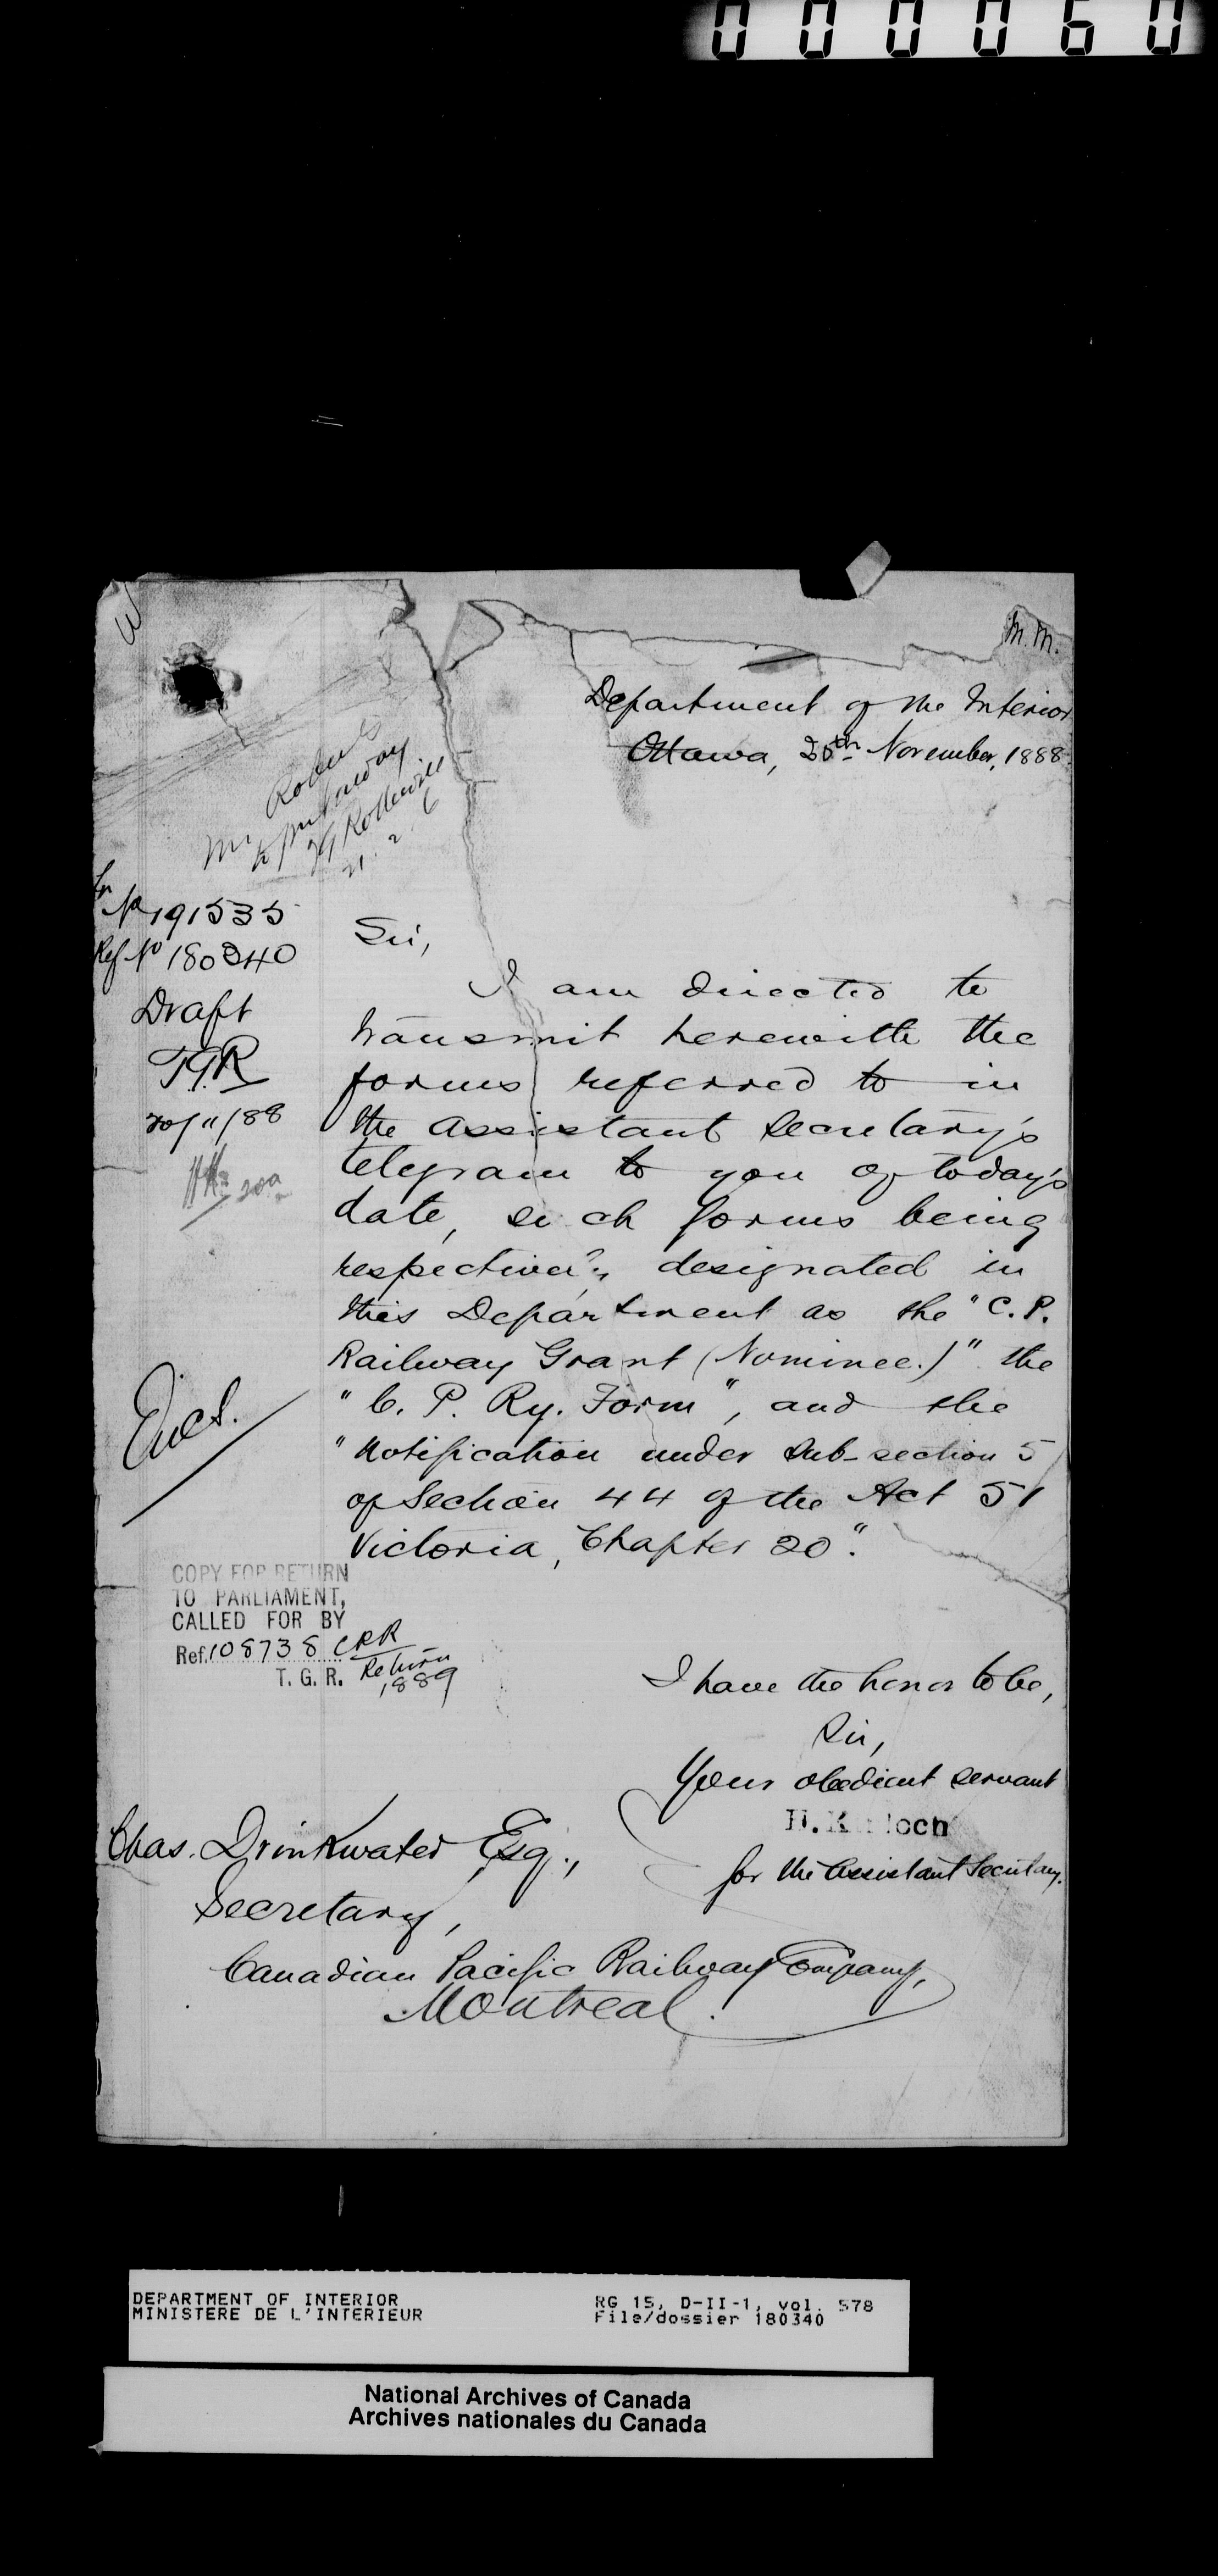 000060
M.M.
Department of the Interior
Ottawa, 20th November, 1888.
Mr Roberts
to put away
21. 2. 6
Ln No 191535
Ref No 180340
Draft
T.G.R
20/11/88
Encl.
Sir,
I am directed to
transmit herewith the
forms referred to in
the Assistant Secretary's
telegram to you of today's
date, such forms being
respectively designated in
this Department as the "C.P.
Railway Grant (Nominee.)" the
"C. P. Ry. Form", and the
"Notification under Sub-section 5
of Section 44 of the Act 51
Victoria, Chapter 20".
COPY FOR RETURN
TO PARLIAMENT,
CALLED FOR BY
Ref. 108738 CRR
T. G. R. Return
1889
I have the honor to be,
Sir,
Your obedient servant
for the Assistant Secretary.
Chas. Drinkwater Esq.,
Secretary,
Canadian Pacific Railway Company,
Montreal.
DEPARTMENT OF INTERIOR
MINISTERE DE L'INTERIEUR
RG 15, D-II-1, vol. 578
File/dossier 180340
National Archives of Canada
Archives nationales du Canada